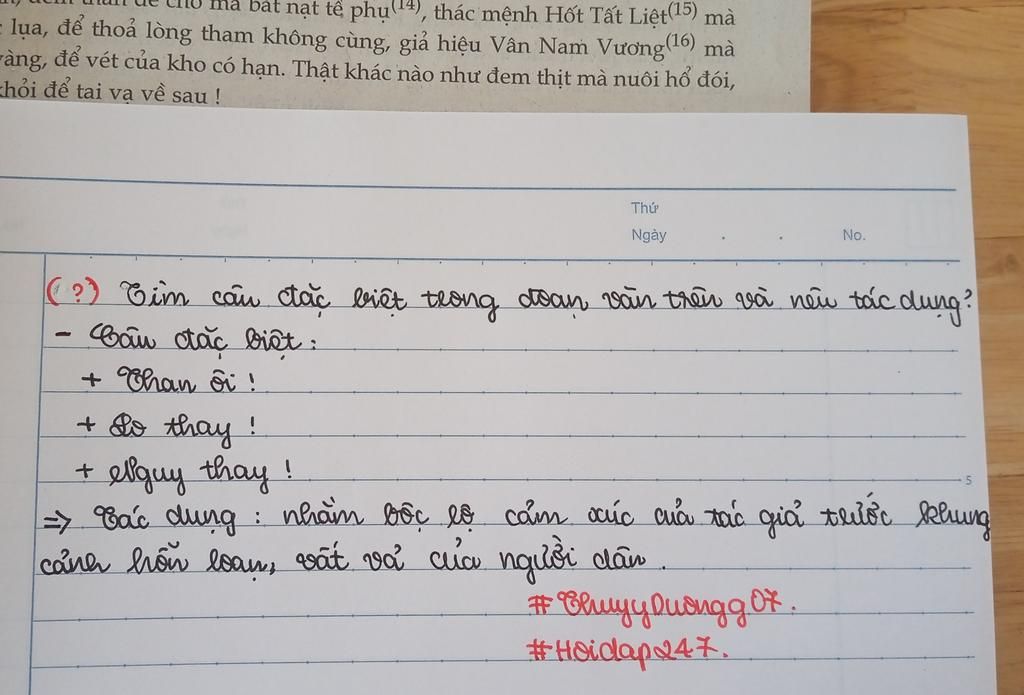 mà bắt nạt tể phụ(14), thác mệnh Hốt Tất Liệt(15) mà
lụa, để thoả lòng tham không cùng, giả hiệu Vân Nam Vương(16) mà
vàng, để vét của kho có hạn. Thật khác nào như đem thịt mà nuôi hổ đói,
khỏi để tai vạ về sau !
Thứ
Ngày . . No.
(?) Tìm câu đặc biệt trong đoạn văn trên và nêu tác dụng?
- Câu đặc biệt:
+ Than ôi !
+ Lo thay !
+ Nguy thay !
5
=> Tác dụng : nhằm bộc lộ cảm xúc của tác giả trước khung
cảnh hỗn loạn, vất vả của người dân.
#ThuyyDuongg07.
#Hoidap247.